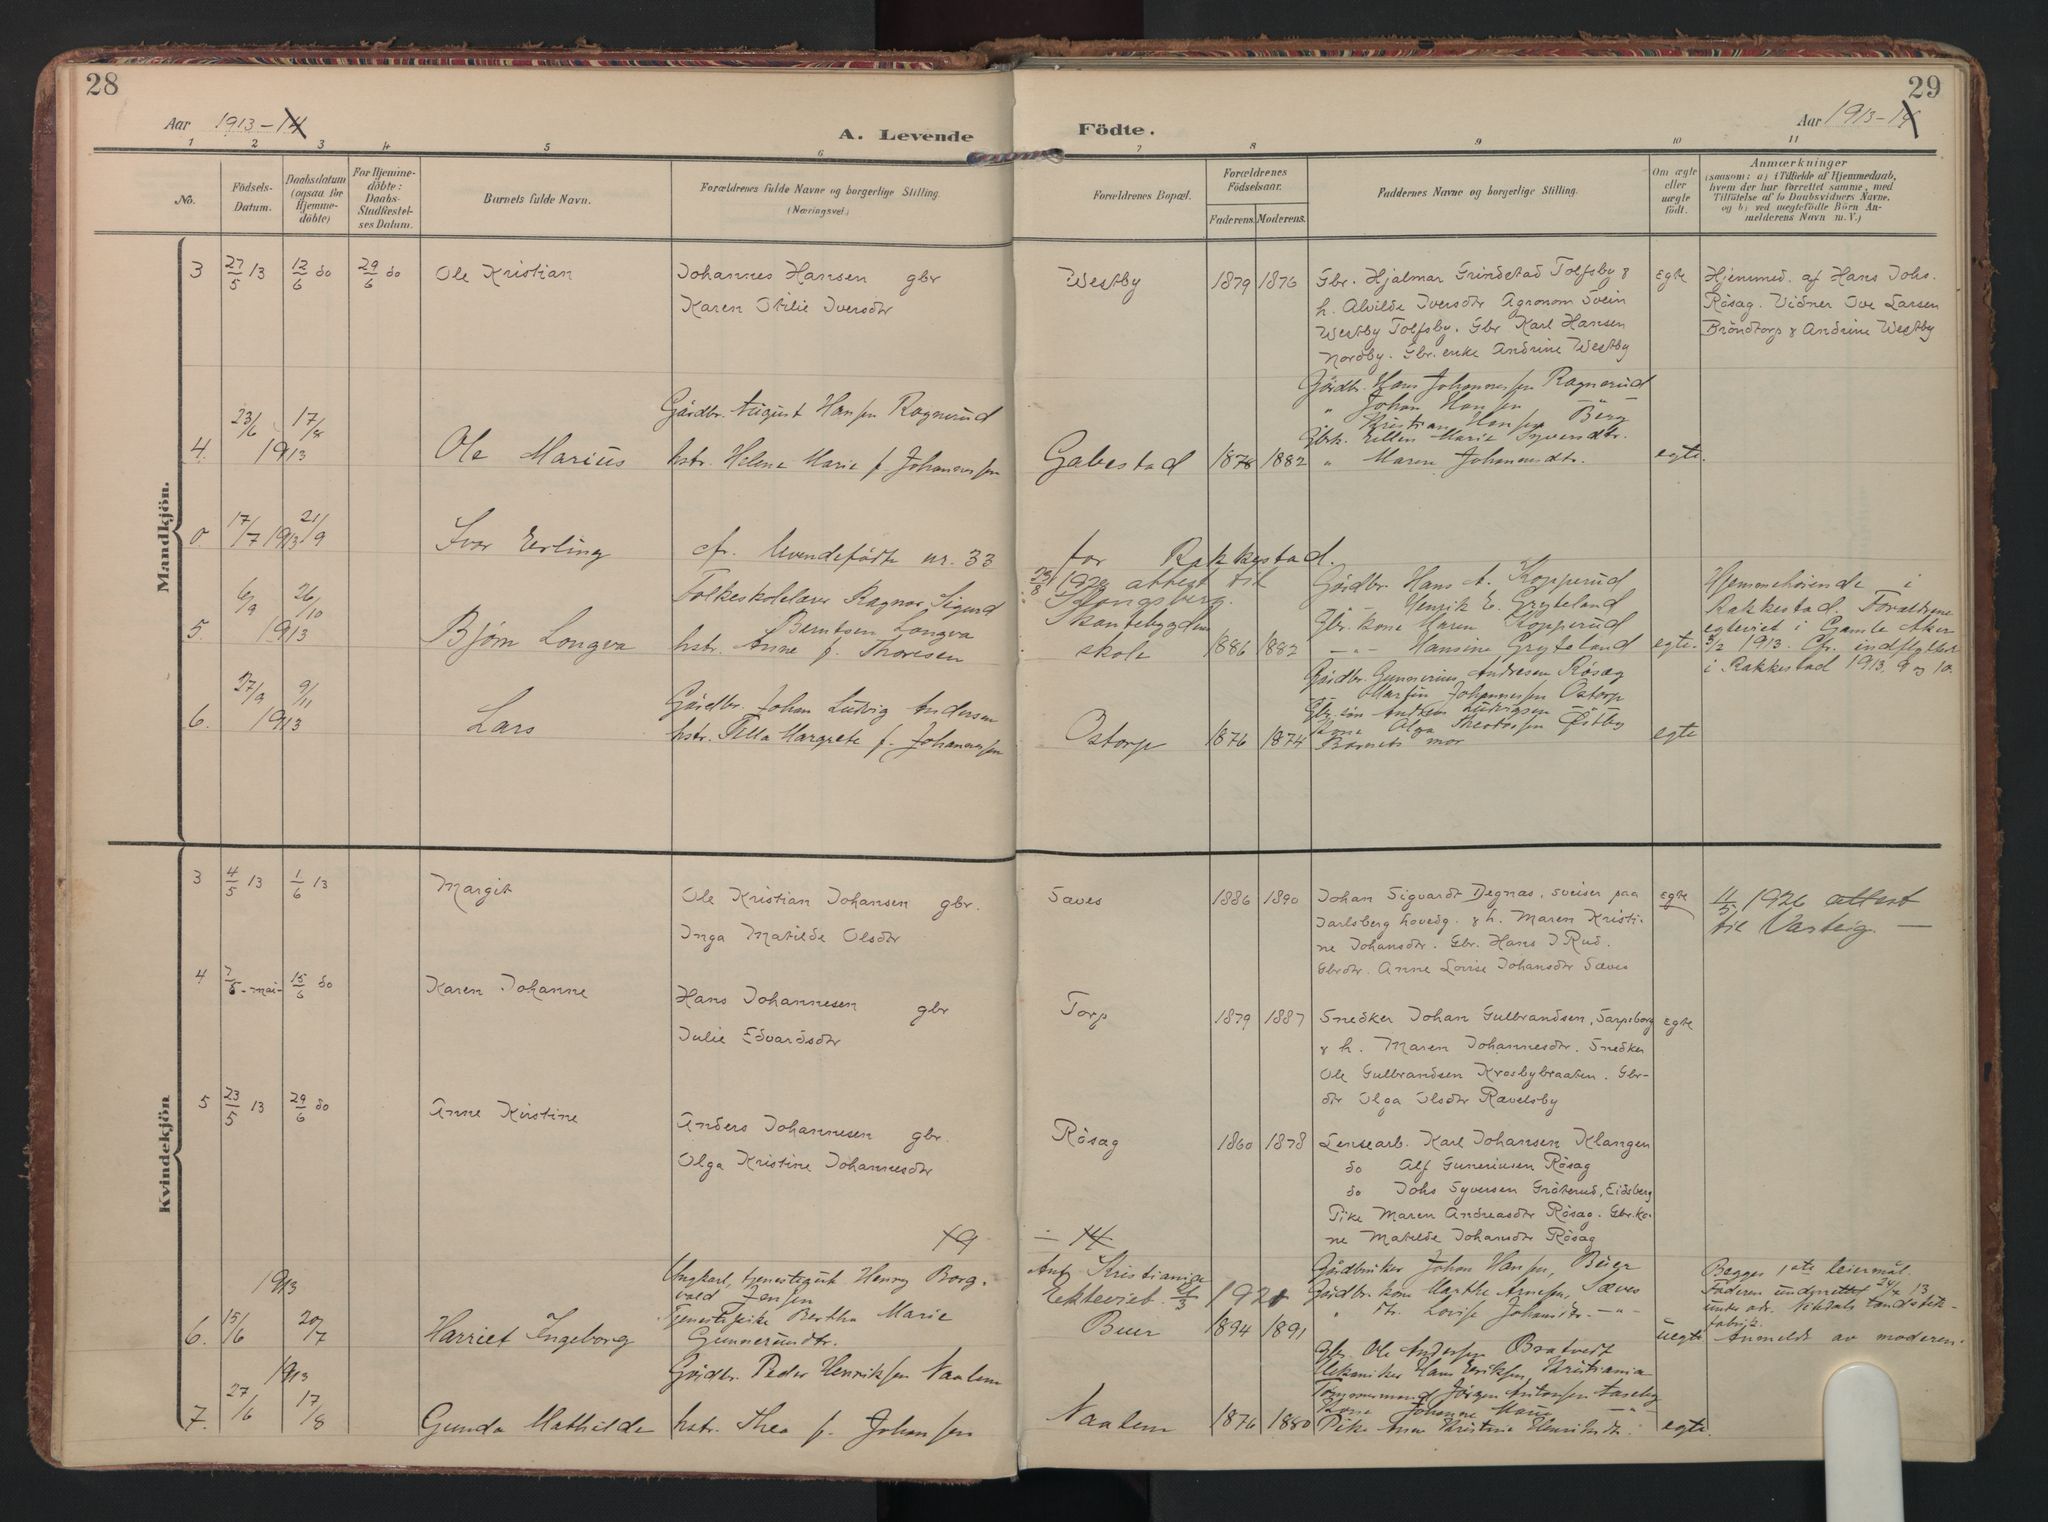 28
29
Aar 1913-14
A. Levende Födte.
Aar 1913-14
1 2 3 4 5 6 7 8 9 10 11
No.
Födsels-
Datum.
Daabsdatum
(ogsaa for
Hjemme-
döbte)
For Hjemme-
döbte:
Daabs-
Stadfæstel-
ses Datum.
Barnets fulde Navn.
Forældrenes fulde Navne og borgerlige Stilling.
(Næringsvei.)
Forældrenes Bopæl.
Forældrenes
Födselsaar.
Faderens. Moderens.
Faddernes Navne og borgerlige Stilling.
Om ægte
eller
uægte
födt.
Anmærkninger
(saasom: a) i Tilfælde af Hjemmedaab,
hvem der har forrettet samme, med
Tilföielse af to Daabsvidners Navne,
og b) ved uægtefödte Börn An-
melderens Navn m. V.)
Mandkjön.
3 27/5 13 12/6 do 29/6 do Ole Kristian
Johannes Hansen gbr
Karen Otilie Iversdtr
Westby 1879 1876
Gbr. Hjalmar Grindstad Tolfsby &
h. Alvilde Iversdtr Agronom Svein
Westby Tolfsby. Gbr Karl Hansen
Nordby. Gbr. enke Andrine Westby
Egte
Hjemmed. af Hans Johs.
Rösag. Vidner Ove Larsen
Bröndtorp & Andrine Westby
4. 23/6 1913 17/8 Ole Marius
Gårdbr. August Hansen Ragnerud
hstr. Helene Marie f. Johannessen
Gabestad 1878 1882
Gårdbr. Hans Johannessen Ragnerud
" Johan Hansen — " —
Kristian Hansen Berg
Gbrk. Ellen Marie Syversdtr.
" Maren Johannesdtr.
egte.
0. 17/7 1913 21/9 Ivar Erling cfr. levendefødte nr. 33 for Rakkestad.
5. 6/9 1913 26/10 Bjørn Longva
Folkeskolelærer Ragnar Sigurd
Berntsen Longva
hstr. Anne f. Thoresen
23/8 1928 attest til
Kongsberg.
Skantebygden
skole 1886 1882
Gårdbr. Hans A. Kopperud
Henrik E. Gryteland
Gbr. kone Maren Kopperud
— " — Hansine Gryteland
egte.
Hjemmehørende i
Rakkestad. Forældrene
egteviet i Gamle Aker
3/2 1913. Cfr. indflyttede
i Rakkestad 1913, 9 og 10.
6. 27/9 1913 9/11 Lars
Gårdbr. Johan Ludvig Andersen
hstr. Tilla Margrete f. Johannessen
Ostorp 1876 1874
Gårdbr. Gunnerius Andresen Rösag
Martin Johannessen Ostorp
Gbr. søn Anders Ludvigsen — " —
Kone Olga Theodorsen Østby
Barnets mor
egte
Kvindekjön
3 4/5 13 1/6 13 Margit
Ole Kristian Johansen gbr.
Inga Matilde Olsdtr
Sæves 1886 1890
Johan Sigvardt Degnæs, sveiser paa
Jarlsberg hovedg. & h. Maren Kristi-
ne Johansdtr. Gbr. Hans J. Rud.
Gbrdtr. Anne Lovise Johansdtr Sæves
Egte
11/5 1926 attest
til Varteig. —
4 7/5 - mai - 15/6 do Karen Johanne
Hans Johannesen gbr
Julie Edvardsdtr
Torp 1879 1887
Snedker Johan Gulbrandsen, Sarpsborg
& h. Maren Johannesdtr. Snedker
Ole Gulbrandsen Krosbybraaten. Gbr-
dtr Olga Olsdtr Ravelsby
Egte
5 23/5 13 29/6 do Anne Kirstine
Anders Johannesen gbr.
Olga Kristine Johannesdtr
Rösag 1860 1878
Lensearb. Karl Johansen Klangen
do Alf Guneriusen Rösag
do Johs Syversen Gröterud, Eidsberg
Pike Maren Andreasdtr Rösag. Gbr.ko-
ne Matilde Johansdtr Rösag
19 — 14
6. 1913 15/6 20/7 Harriet Ingeborg
Ungkarl, tjenestegut Henry Borg-
vald Jensen
Tjenestepike Bertha Marie
Gunnerusdtr.
Att. Kristiania
Ekteviet 21/3 1921
Buer 1894 1891
Gårdbruker Johan Hansen, Buer
Gårdbr. kone Marthe Arnesen, Sæves
" dtr. Lovise Johansdtr. — " —
uegte
Begges 1ste leiermål.
Faderen underrettet 24/7 13
under adr. Nitedals tændstik-
fabrik.
Anmeldt av moderen.
7. 1913 27/6 17/8 Gunda Mathilde
Gårdbr. Peder Henriksen Naalem
hstr. Thea f. Johansen
Naalem 1876 1880
Gbr. Ole Andersen Bratvedt
Mekaniker Hans Eriksen Kristiania
Tømmermand Jørgen Antonsen Aaseby
Kone Johanne Marie — " —
Pike Anne Kristine Henriksdtr.
egte.